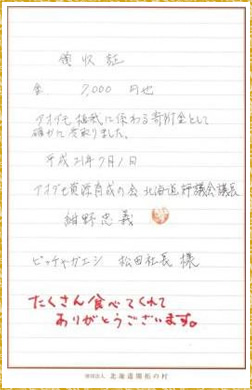 領収証
金 7,000 円也
アオダモ植栽に係わる寄附金として
確かに受取りました。
平成21年7月1日
アオダモ資源育成の会 北海道評議会議長
紺野忠義
ピッチャガエシ 松田社長 様
たくさん食べてくれて
ありがとうございます。
財団法人 北海道開拓の村